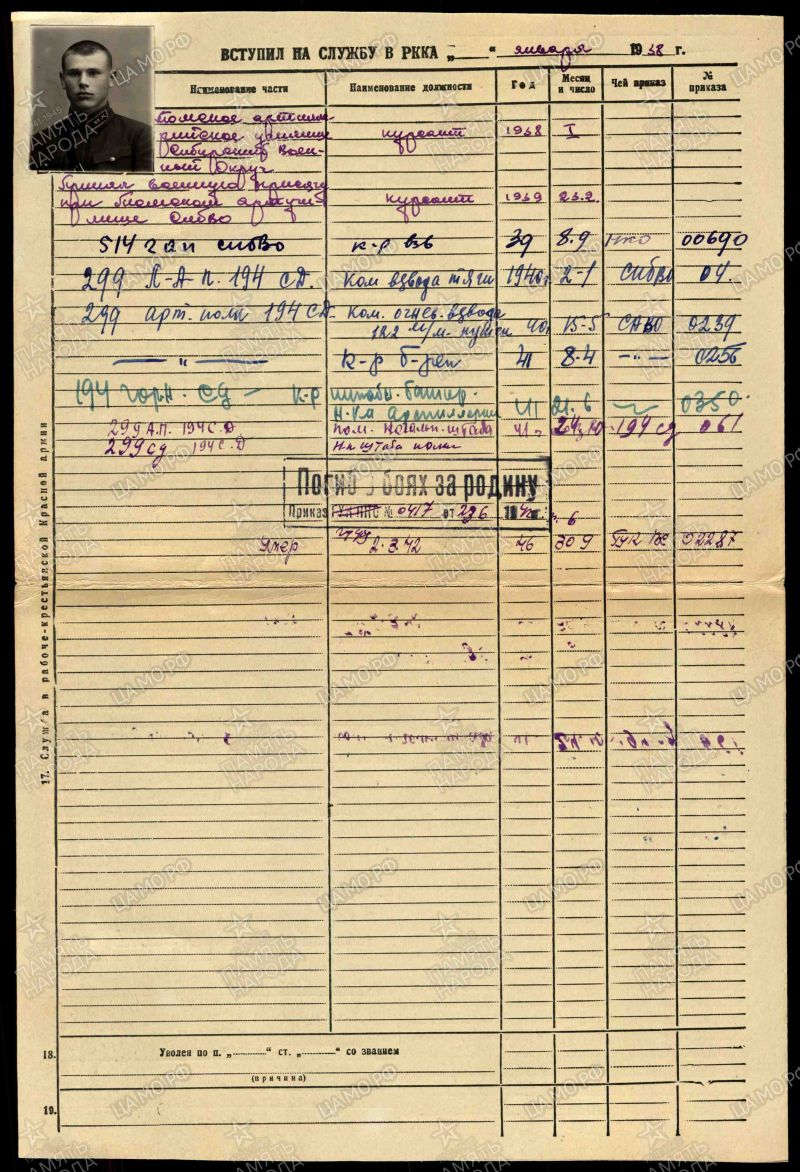 ВСТУПИЛ НА СЛУЖБУ В РККА „ “ января 1938 г.
Наименование части Наименование должности Год Месяц и число Чей приказ № приказа
Томское артилле
рийское училище курсант 1938 I
Сибирский Воен-
ный Округ
Принял военную присягу
при Томском артучи 
лище Сибво курсант 1939 23.2.
514 гап сибво к-р взв 39 8.9 НКО 00690
299 Л-А-П. 194 СД. Ком взвода тяги 1940г 2-1 СИБВО 04
299 арт. полк 194 СД. Ком. огнев. взвода
122 м/м. пушек 40г 15-5 САВО 0239
— „ — к-р б-реи 41 8.4 -„- 0256
194 горн. СД - к-р штабн. батар.
Н-ка артиллерии 41 21.6 0350
299 А.П. 194 С.Д пом. начальн. штаба 41г 194 сд 061
299 сд 194 С.Д нк штаба полка
Погиб в боях за родину
Приказ № 0417 от 194 г.
Умер 2.3.42 46 30 9 02287
17. Служба в рабоче-крестьянской Красной армии
18. Уволен по п. „ “ ст. „ “ со званием
(причина)
19.
ПАМЯТЬ НАРОДА
ЦАМО.РФ